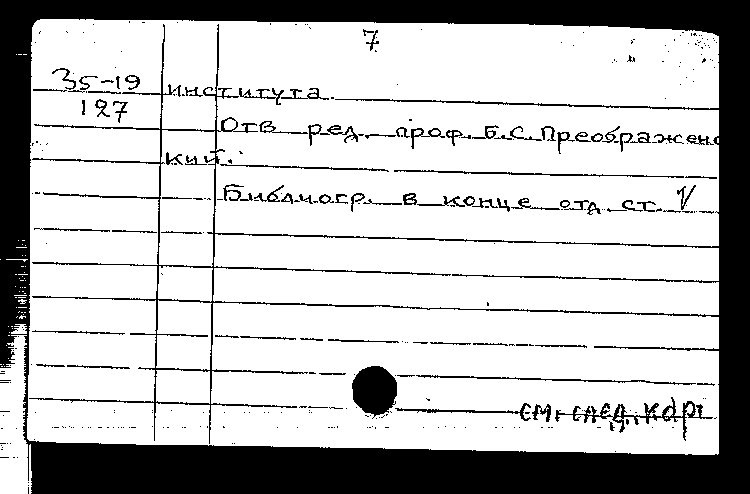 7
35-19 института.
127
Отв ред. проф. Б.С. Преображенс
кий.
Библиогр. в конце отд. ст. V
см. след. карт